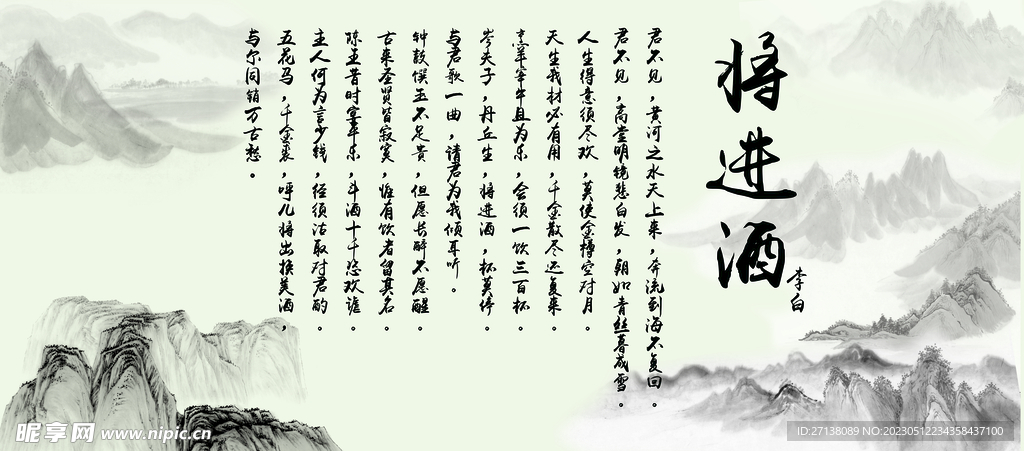 将进酒
李白
君不见，黄河之水天上来，奔流到海不复回。
君不见，高堂明镜悲白发，朝如青丝暮成雪。
人生得意须尽欢，莫使金樽空对月。
天生我材必有用，千金散尽还复来。
烹羊宰牛且为乐，会须一饮三百杯。
岑夫子，丹丘生，将进酒，杯莫停。
与君歌一曲，请君为我倾耳听。
钟鼓馔玉不足贵，但愿长醉不愿醒。
古来圣贤皆寂寞，惟有饮者留其名。
陈王昔时宴平乐，斗酒十千恣欢谑。
主人何为言少钱，径须沽取对君酌。
五花马，千金裘，呼儿将出换美酒，
与尔同销万古愁。
昵享网 www.nipic.cn
ID:27138089 NO:20230512234358437100